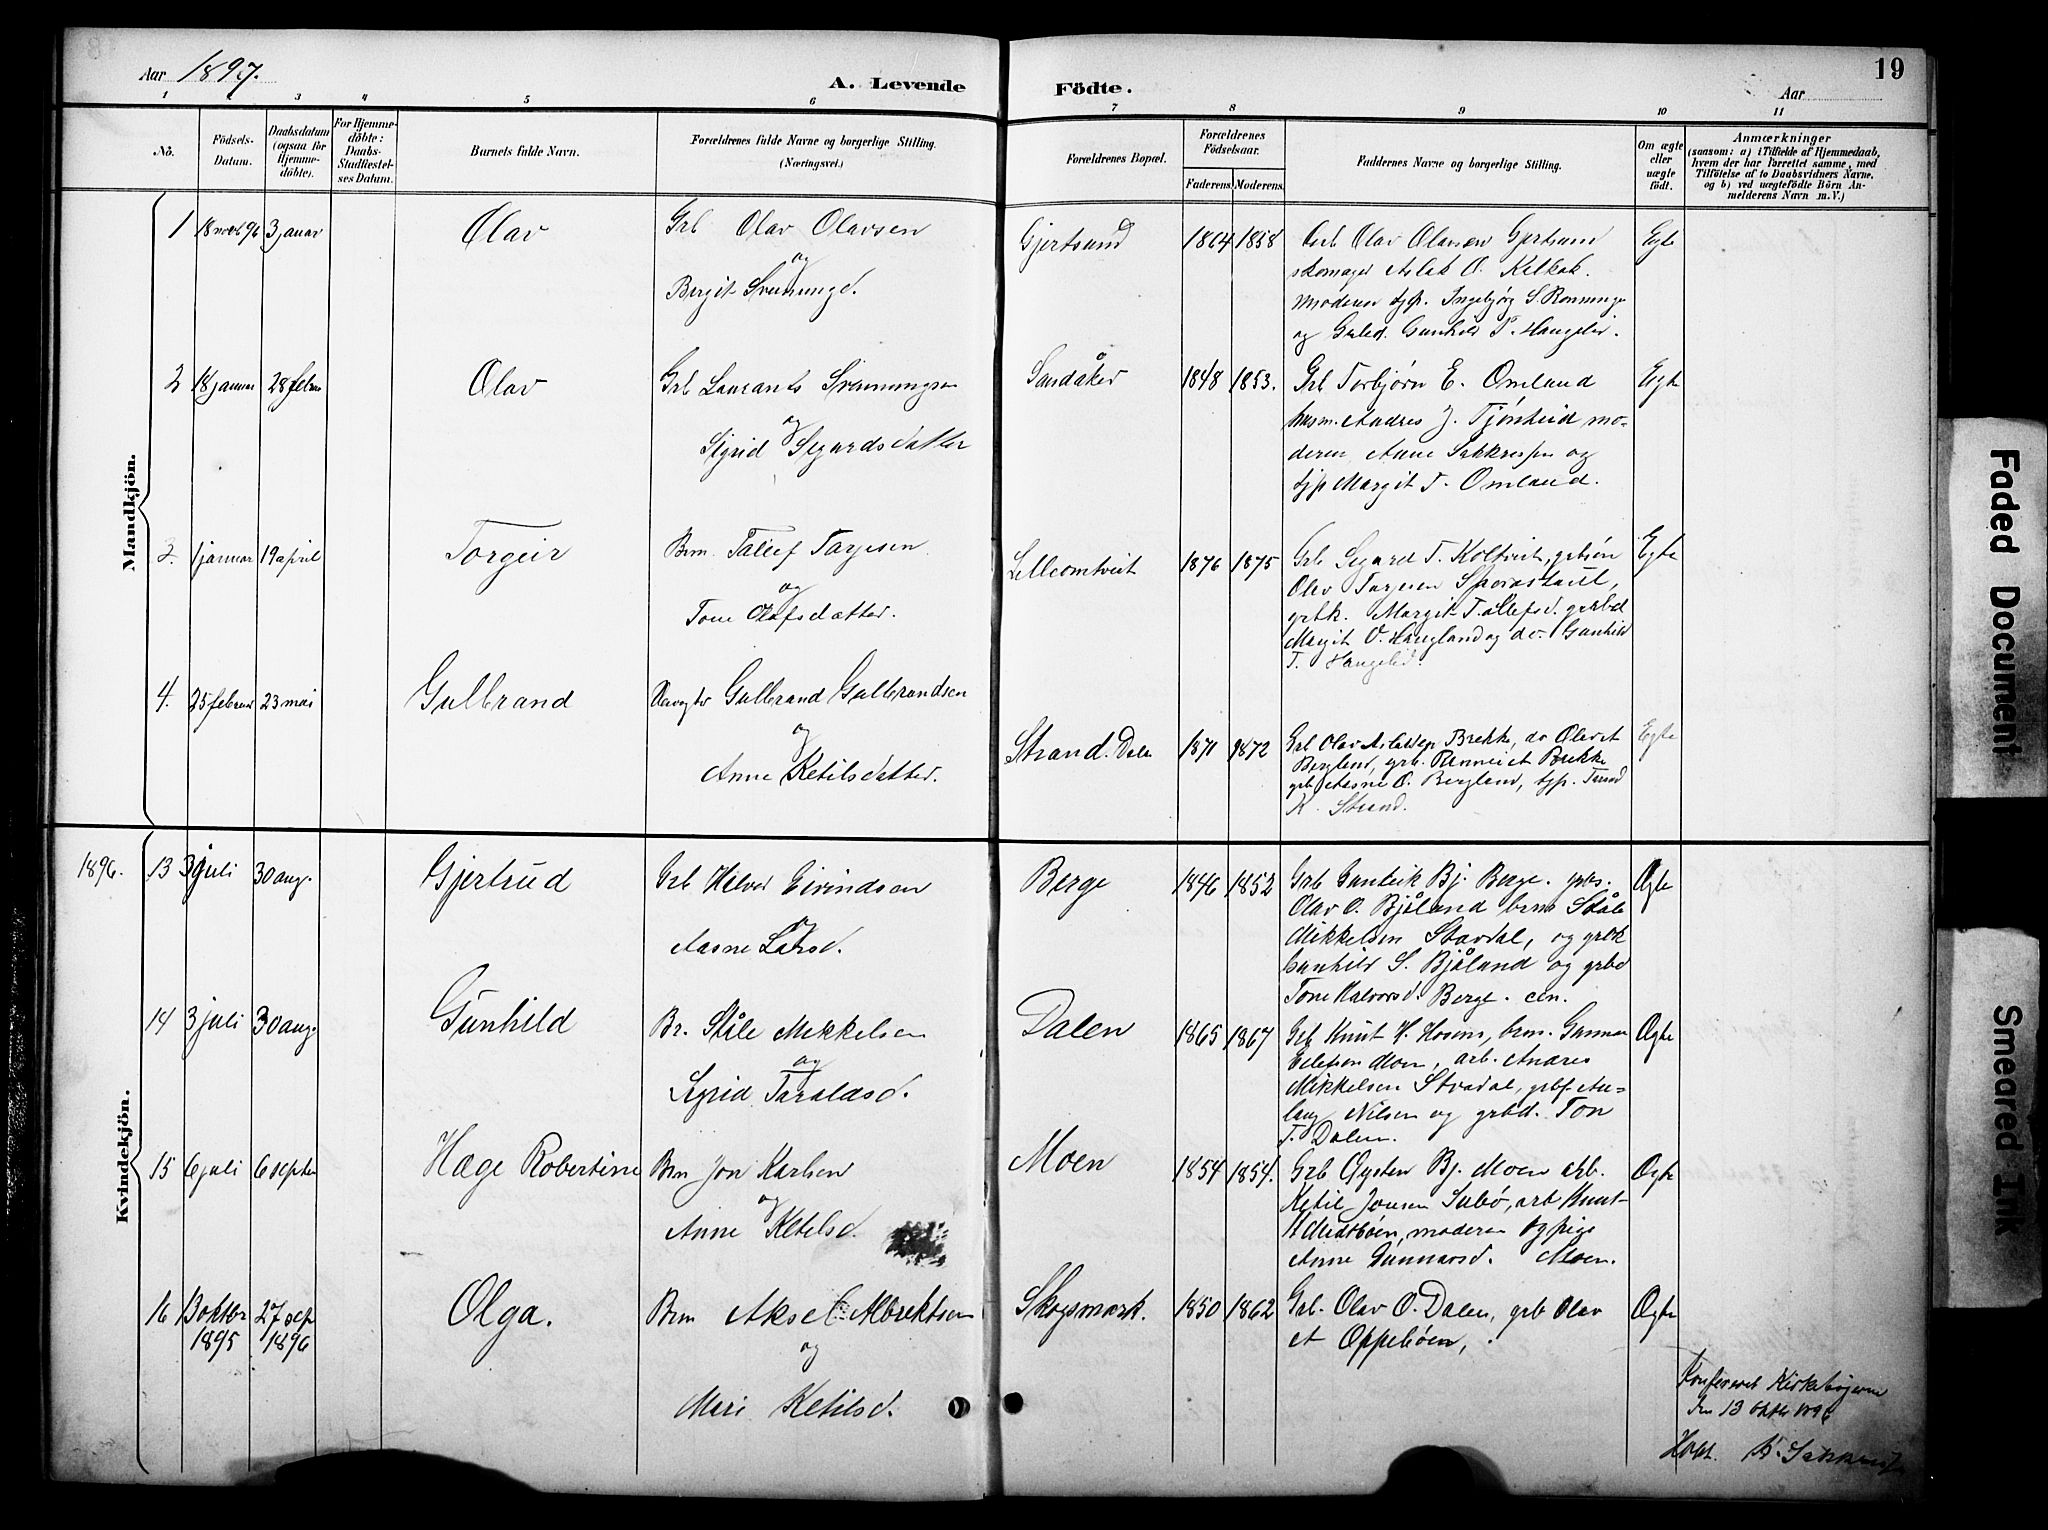 Aar 1897.
A. Levende Födte.
19
Aar
1 2 3 4 5 6 7 8 9 10 11
No.
Födsels-Datum.
Daabsdatum (ogsaa for Hjemme-döbte).
For Hjemme-döbte: Daabs-Stadfæstel-ses Datum.
Barnets fulde Navn.
Forældrenes fulde Navne og borgerlige Stilling. (Næringsvei.)
Forældrenes Bopæl.
Forældrenes Födselsaar.
Faderens. Moderens.
Faddernes Navne og borgerlige Stilling.
Om ægte eller uægte født.
Anmærkninger
(saasom: a) i Tilfælde af Hjemmedaab, hvem der har forrettet samme, med Tilföielse af to Daabsvidners Navne, og b) ved uægtefödte Börn An-melderens Navn m. V.)
Mandkjön.
1 18 novbr 96 3 januar Olav Grb Olav Olavsen
og
Bergit Svenungd.
Gjertsund 1864 1858 Olav Olavsen
skomager Aslak O. Kilkak.
moderen tjp. Ingebjørg S. Rønninge
og Gunhild T. Haugelid.
Egte
2 18 januar 28 febr Olav Grb Laurants Svenningsen
og
Sigrid Segurdsdatter
Sandåker 1848 1853. Grb Torbjørn E. Omland
husm. Andres J. Tjónheid mo-
deren Anne og
tjp Margit T. Omland.
Egte
3. 1 januar 19 april Torgeir Brm. Tallef Tarjesen
og
Tone Olafsdatter.
Lilleomtveit 1876 1875 Grb Segurd T. Koltveit, grbsøn
Olav Tarjesen
grbk. Margit Tallefsd. grbd
Margit O. Haugland og do. Gunhild
T. Haugelid.
Egte
4. 25 februar 23 mai Gulbrand Gulbrand Gulbrandsen
og
Anne Ketilsdatter.
Strand. Dale 1871 1872 Grb Olav Brekke, do Olav et
Bergland, grb. Brekke
grb Aasne O. Bergland, tjp. Taran
K. Strand.
Egte
Kvindekjön.
1896. 13 3 juli 30 aug. Gjertrud Grb Halvor Eivindsen
og
Aasne Larsd.
Berge 1846 1852 Grb Guntleik Bj. Berge. grbs.
Olav O. Bjåland brm Ståle
Mikkelsen Stavdal, og grbk
Gunhild S. Bjåland og grbd
Tone Halvorsd. Berge.
Ogte
14 3 juli 30 aug. Gunhild Br. Ståle Mikkelsen
og
Sigrid Taraldsd.
Dalen 1865 1867 Grb Knut H. Brm. Gunnar
Moen, arb. Andres
Mikkelsen
Nilsen og grbd. Ton
T. Dalen.
Ogte
15 6 juli 6 septbr Hæge Robertine Brm Jon Karlsen
og
Anne Ketilsd.
Moen 1854 1854. Grb Øysten Bj. Moen arb.
Ketil Jonsen arb Knut
H Midtbøen, moderen og pige
Anne Gunnarsd. Moen.
Ogte
16 3 oktbr 1895 27 sep 1896 Olga. Brm Aksel Albrektsen
og
Mari Ketilsd.
Skogsmark. 1850 1862 Grb. Olav O. Dalen, grb Olav
et Oppebøen,
Ogte
Konfereret Kirkebøgerne
den 13 oktbr 1896